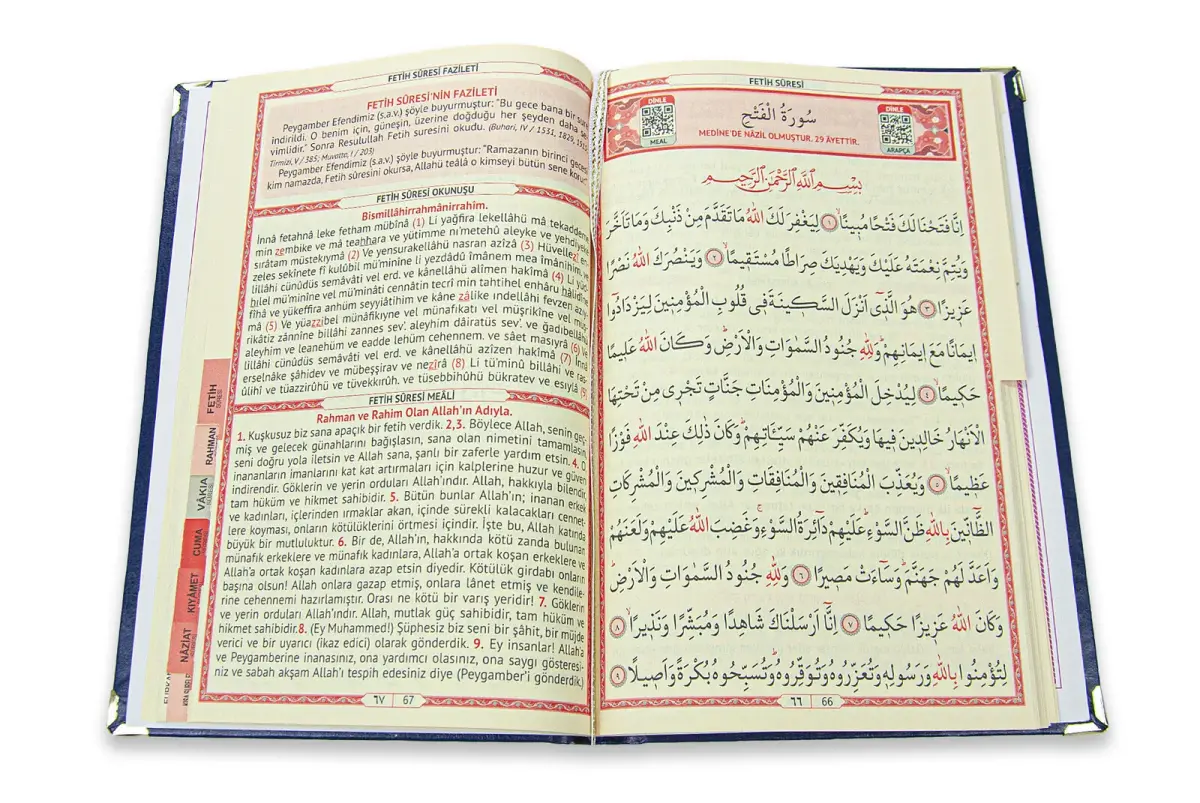 FETİH SÛRESİ
DİNLE
MEAL
سُورَةُ الْفَتْحِ
MEDİNE'DE NÂZİL OLMUŞTUR. 29 ÂYETTİR.
DİNLE
ARAPÇA
بِسْمِ اللّٰهِ الرَّحْمٰنِ الرَّحٖيمِ
اِنَّا فَتَحْنَا لَكَ فَتْحًا مُبٖينًاۙ ﴿١﴾ لِيَغْفِرَ لَكَ اللّٰهُ مَا تَقَدَّمَ مِنْ ذَنْبِكَ وَمَا تَاَخَّرَ
وَيُتِمَّ نِعْمَتَهُ عَلَيْكَ وَيَهْدِيَكَ صِرَاطًا مُسْتَقٖيمًاۙ ﴿٢﴾ وَيَنْصُرَكَ اللّٰهُ نَصْرًا
عَزٖيزًا ﴿٣﴾ هُوَ الَّذٖٓى اَنْزَلَ السَّكٖينَةَ فٖى قُلُوبِ الْمُؤْمِنٖينَ لِيَزْدَادُٓوا
اٖيمَانًا مَعَ اٖيمَانِهِمْۜ وَلِلّٰهِ جُنُودُ السَّمٰوَاتِ وَالْاَرْضِۜ وَكَانَ اللّٰهُ عَلٖيمًا
حَكٖيمًاۙ ﴿٤﴾ لِيُدْخِلَ الْمُؤْمِنٖينَ وَالْمُؤْمِنَاتِ جَنَّاتٍ تَجْرٖى مِنْ تَحْتِهَا
الْاَنْهَارُ خَالِدٖينَ فٖيهَا وَيُكَفِّرَ عَنْهُمْ سَيِّـَٔاتِهِمْۜ وَكَانَ ذٰلِكَ عِنْدَ اللّٰهِ فَوْزًا
عَظٖيمًاۙ ﴿٥﴾ وَيُعَذِّبَ الْمُنَافِقٖينَ وَالْمُنَافِقَاتِ وَالْمُشْرِكٖينَ وَالْمُشْرِكَاتِ
الظَّٓانّٖينَ بِاللّٰهِ ظَنَّ السَّوْءِۜ عَلَيْهِمْ دَٓائِرَةُ السَّوْءِۚ وَغَضِبَ اللّٰهُ عَلَيْهِمْ وَلَعَنَهُمْ
وَاَعَدَّ لَهُمْ جَهَنَّمَۜ وَسَٓاءَتْ مَصٖيرًا ﴿٦﴾ وَلِلّٰهِ جُنُودُ السَّمٰوَاتِ وَالْاَرْضِۜ
وَكَانَ اللّٰهُ عَزٖيزًا حَكٖيمًا ﴿٧﴾ اِنَّٓا اَرْسَلْنَاكَ شَاهِدًا وَمُبَشِّرًا وَنَذٖيرًاۙ ﴿٨﴾
لِتُؤْمِنُوا بِاللّٰهِ وَرَسُولِهٖ وَتُعَزِّرُوهُ وَتُوَقِّرُوهُۜ وَتُسَبِّحُوهُ بُكْرَةً وَاَصٖيلًا ﴿٩﴾
٦٦ 66
FETİH SÛRESİ FAZİLETİ
FETİH SÛRESİ'NİN FAZİLETİ
Peygamber Efendimiz (s.a.v.) şöyle buyurmuştur: "Bu gece bana bir sure
indirildi. O benim için, güneşin, üzerine doğduğu her şeyden daha se-
vimlidir." Sonra Resulullah Fetih suresini okudu. (Buhari, IV / 1531, 1829, 1915
Tirmizi, V / 385; Muvatta, I / 203)
Peygamber Efendimiz (s.a.v.) şöyle buyurmuştur: "Ramazanın birinci gecesi
kim namazda, Fetih sûresini okursa, Allahü teâlâ o kimseyi bütün sene korur."
FETİH SÛRESİ OKUNUŞU
Bismillâhirrahmânirrahim.
İnnâ fetahnâ leke fetham mübînâ (1) Li yağfira lekellâhü mâ tekaddeme
min zembike ve mâ teahhara ve yütimme ni'metehû aleyke ve yehdiyeke
sırâtam müstekıymâ (2) Ve yensurakellâhü nasran azîzâ (3) Hüvellezî en-
zeles sekînete fî kulûbil mü'minîne li yezdâdû îmânem mea îmânihim, ve
lillâhi cünûdüs semâvâti vel erd. ve kânellâhü alîmen hakîmâ (4) Li yüd-
hilel mü'minîne vel mü'minâti cennâtin tecrî min tahtihel enhâru hâlidîne
fîhâ ve yükeffira anhüm seyyiâtihim ve kâne zâlike ındellâhi fevzen azıy-
mâ (5) Ve yüazzibel münâfikıyne vel münafikati vel müşrikîne vel müş-
rikâtiz zânnîne billâhi zannes sev'. aleyhim dâiratüs sev'. ve ğadıbellâhü
aleyhim ve leanehüm ve eadde lehüm cehennem. ve sâet masıyrâ (6) Ve
lillâhi cünûdüs semâvâti vel erd. ve kânellâhü azîzen hakîmâ (7) İnnâ
erselnâke şâhidev ve mübeşşirav ve nezîrâ (8) Li tü'minû billâhi ve ras-
ûlihî ve tüazzirûhü ve tüvekkırûh. ve tüsebbihûhü bükratev ve esıylâ (9)
FETİH SÛRESİ MEÂLİ
Rahman ve Rahim Olan Allah'ın Adıyla.
1. Kuşkusuz biz sana apaçık bir fetih verdik. 2,3. Böylece Allah, senin geç-
miş ve gelecek günahlarını bağışlasın, sana olan nimetini tamamlasın,
seni doğru yola iletsin ve Allah sana, şanlı bir zaferle yardım etsin. 4. O
inananların imanlarını kat kat artırmaları için kalplerine huzur ve güven
indirendir. Göklerin ve yerin orduları Allah'ındır. Allah, hakkıyla bilendir,
tam hüküm ve hikmet sahibidir. 5. Bütün bunlar Allah'ın; inanan erkek
ve kadınları, içlerinden ırmaklar akan, içinde sürekli kalacakları cennet-
lere koyması, onların kötülüklerini örtmesi içindir. İşte bu, Allah katında
büyük bir mutluluktur. 6. Bir de, Allah'ın, hakkında kötü zanda bulunan
münafık erkeklere ve münafık kadınlara, Allah'a ortak koşan erkeklere ve
Allah'a ortak koşan kadınlara azap etsin diyedir. Kötülük girdabı onların
başına olsun! Allah onlara gazap etmiş, onlara lânet etmiş ve kendile-
rine cehennemi hazırlamıştır. Orası ne kötü bir varış yeridir! 7. Göklerin
ve yerin orduları Allah'ındır. Allah, mutlak güç sahibidir, tam hüküm ve
hikmet sahibidir.8. (Ey Muhammed!) Şüphesiz biz seni bir şâhit, bir müjde
verici ve bir uyarıcı (ikaz edici) olarak gönderdik. 9. Ey insanlar! Allah'a
ve Peygamberine inanasınız, ona yardımcı olasınız, ona saygı gösteresi-
niz ve sabah akşam Allah'ı tespih edesiniz diye (Peygamber'i gönderdik.)
٦٧ 67
FETİH
RAHMAN
VÂKIA
CUMA
KIYÂMET
NÂZİAT